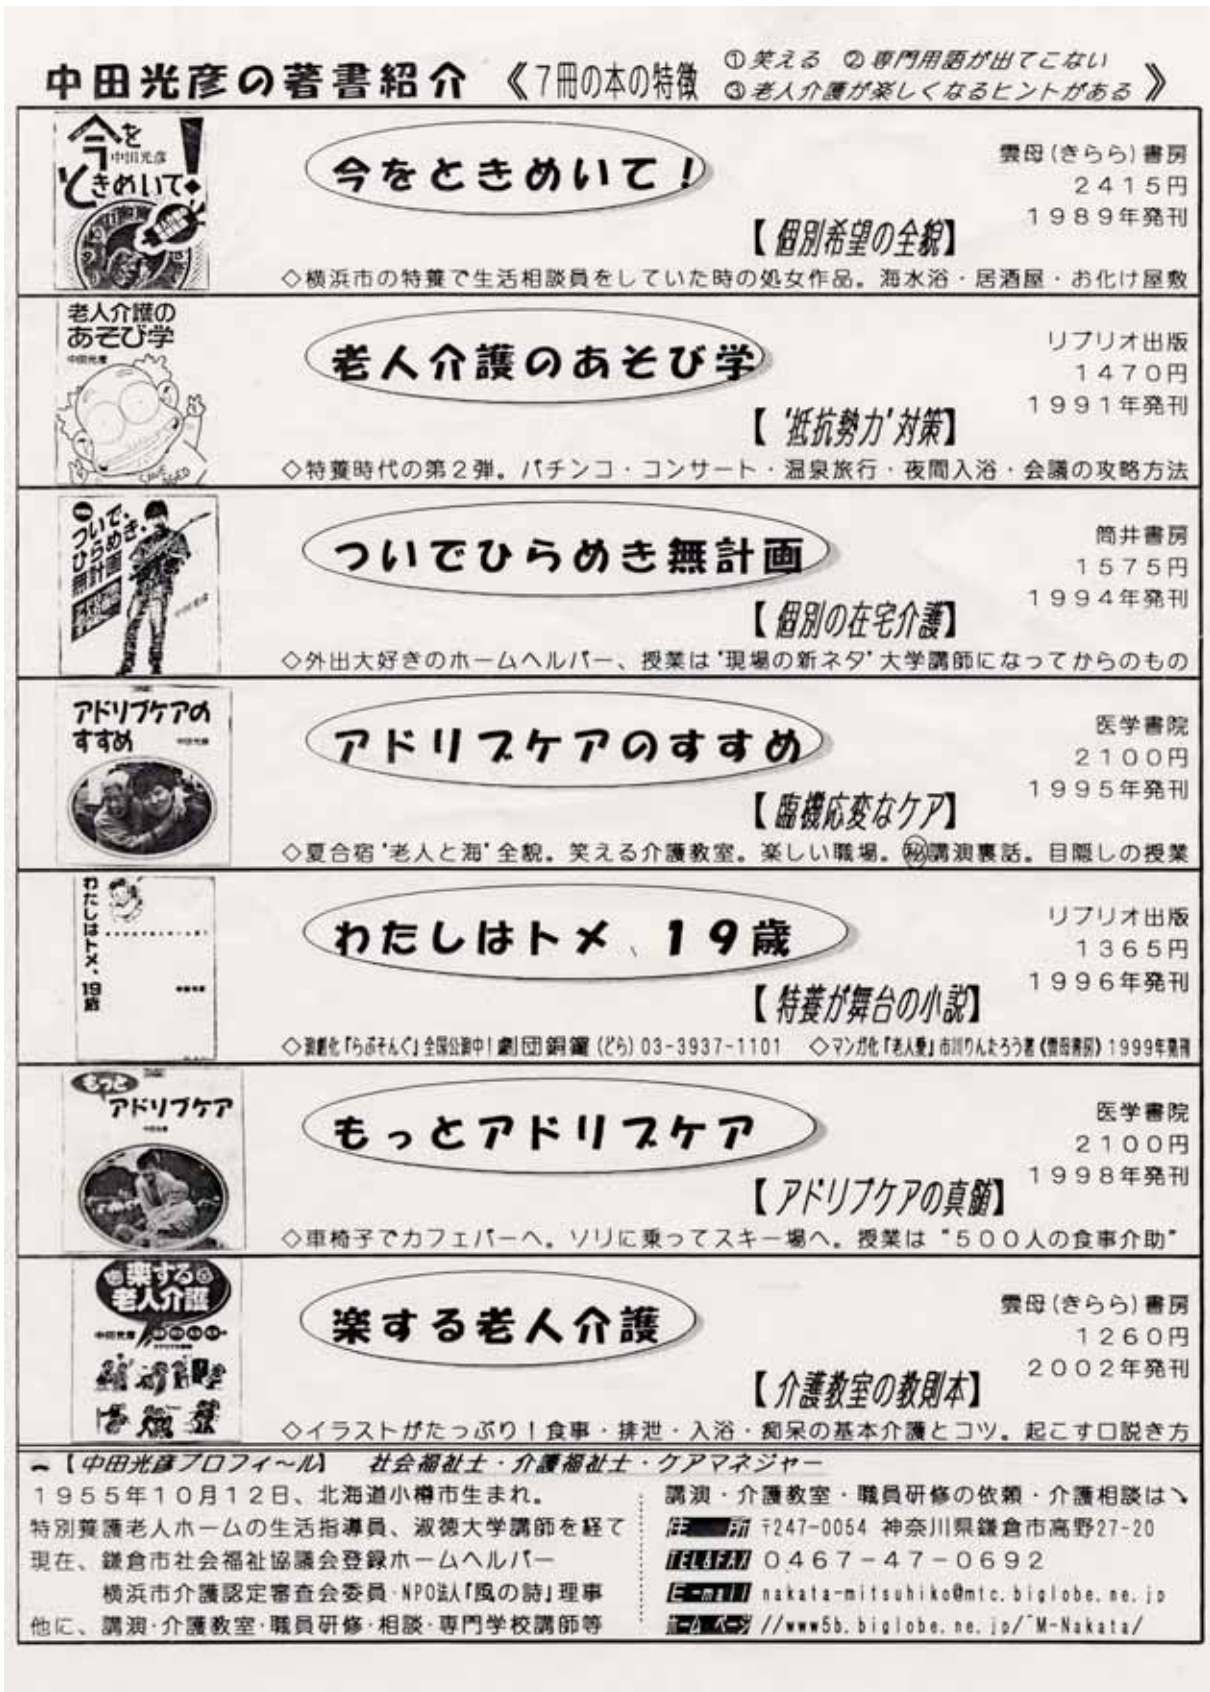 中田光彦の著書紹介 《7冊の本の特徴 ①笑える ②専門用語が出てこない
③老人介護が楽しくなるヒントがある》
今を
中田光彦
ときめいて!
今をときめいて!
雲母(きらら)書房
2415円
1989年発刊
【個別希望の全貌】
◇横浜市の特養で生活相談員をしていた時の処女作品。海水浴・居酒屋・お化け屋敷
老人介護の
あそび学
中田光彦
老人介護のあそび学
リブリオ出版
1470円
1991年発刊
【'抵抗勢力'対策】
◇特養時代の第2弾。パチンコ・コンサート・温泉旅行・夜間入浴・会議の攻略方法
ついで、
ひらめき、
無計画
ついでひらめき無計画
筒井書房
1575円
1994年発刊
【個別の在宅介護】
◇外出大好きのホームヘルパー、授業は'現場の新ネタ'大学講師になってからのもの
アドリブケアの
すすめ
中田光彦
アドリブケアのすすめ
医学書院
2100円
1995年発刊
【臨機応変なケア】
◇夏合宿'老人と海'全貌。笑える介護教室。楽しい職場。㊙講演裏話。目隠しの授業
わたしはトメ、19歳
わたしはトメ、19歳
リブリオ出版
1365円
1996年発刊
【特養が舞台の小説】
◇演劇化『らぶそんぐ』全国公演中!劇団銅鑼(どら)03-3937-1101 ◇マンガ化『老人愛』市川りんたろう著《雲母書房》1999年発刊
もっと
アドリブケア
もっとアドリブケア
医学書院
2100円
1998年発刊
【アドリブケアの真髄】
◇車椅子でカフェバーへ。ソリに乗ってスキー場へ。授業は"500人の食事介助"
楽する
老人介護
中田光彦
楽する老人介護
雲母(きらら)書房
1260円
2002年発刊
【介護教室の教則本】
◇イラストがたっぷり!食事・排泄・入浴・痴呆の基本介護とコツ。起こす口説き方
【中田光彦プロフィ〜ル】 社会福祉士・介護福祉士・ケアマネジャー
1955年10月12日、北海道小樽市生まれ。
特別養護老人ホームの生活指導員、淑徳大学講師を経て
現在、鎌倉市社会福祉協議会登録ホームヘルパー
横浜市介護認定審査会委員・NPO法人『風の詩』理事
他に、講演・介護教室・職員研修・相談・専門学校講師等
講演・介護教室・職員研修の依頼・介護相談は↘
住所 〒247-0054 神奈川県鎌倉市高野27-20
TEL&FAX 0467-47-0692
E-mail nakata-mitsuhiko@mtc.biglobe.ne.jp
ホームページ //www5b.biglobe.ne.jp/~M-Nakata/